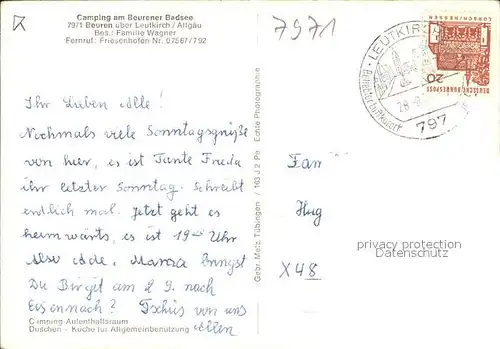 Camping am Beurener Badsee
7971 Beuren über Leutkirch / Allgäu
Bes.: Familie Wagner
Fernruf: Friesenhofen Nr. 07567/792
7971
LEUTKIRCH
797
20
DEUTSCHE BUNDESPOST
LORSCH/HESSEN
Ihr Lieben Alle!
Nochmals viele Sonntagsgrüße
von hier, es ist Tante Frieda
ihr letzter Sonntag. Schreibt
endlich mal. Jetzt geht es
heimwärts, es ist 19 Uhr
Also Ade, Mama bringst
Du Birgit am 2 9. nach
Eisennach? Tschüs von uns
Allen
Camping-Aufenthaltsraum
Duschen - Küche für Allgemeinbenützung
Gebr. Metz, Tübingen / 163 J 2 Pa Echte Photographie
Fam
Hug
X48
privacy protection
Datenschutz